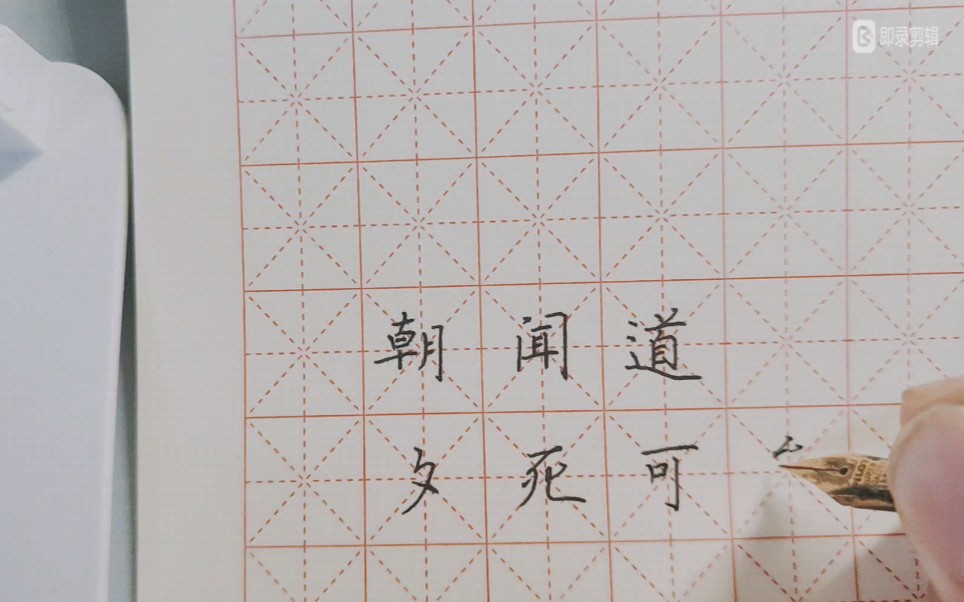 即录剪辑
朝闻道
夕死可